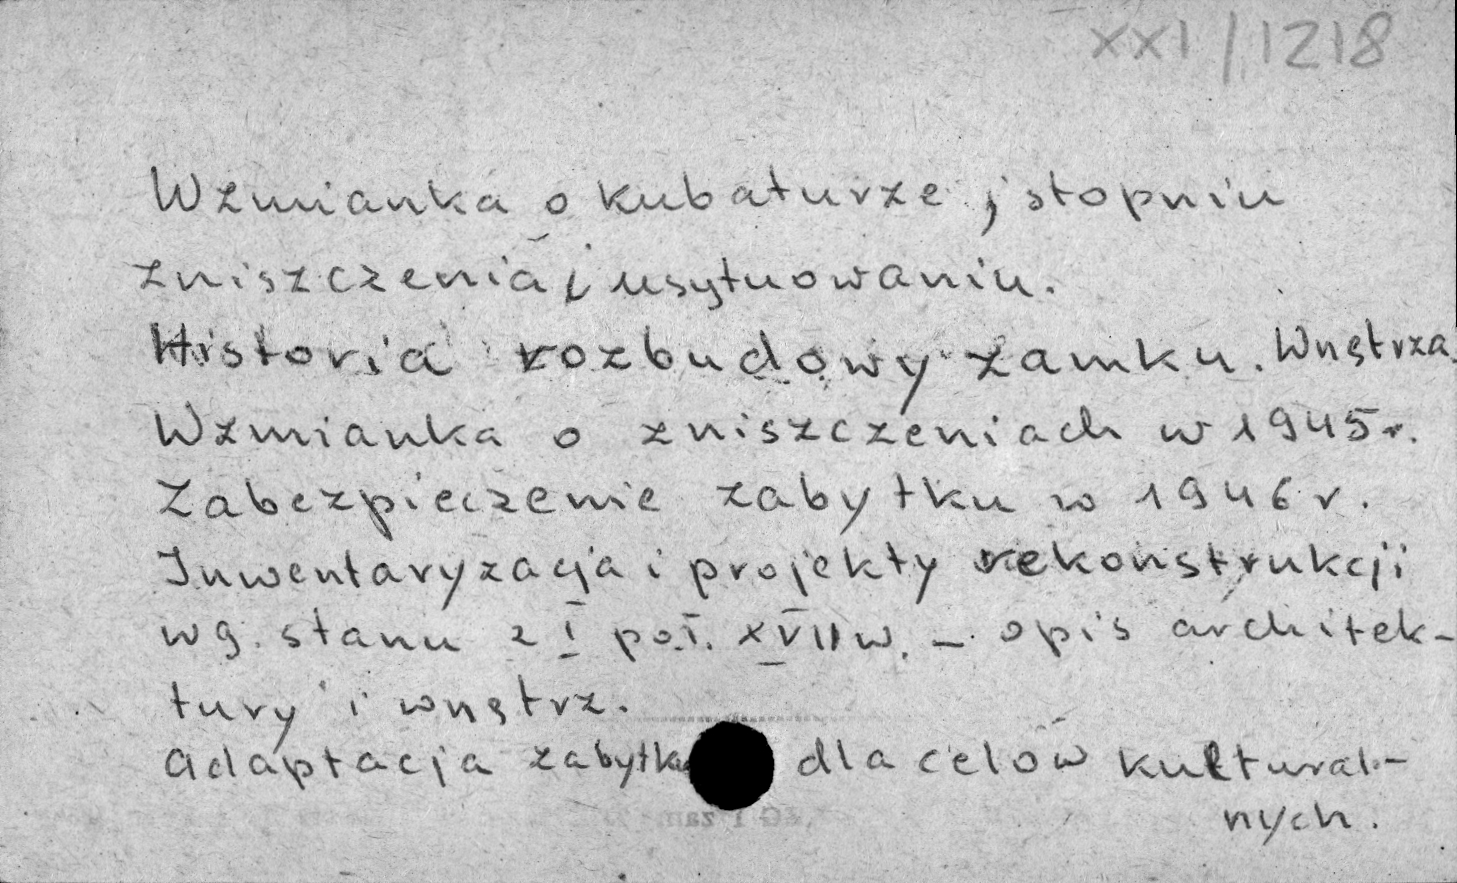 XXI/1218
Wzmianka o kubaturze, stopniu
zniszczenia i usytuowaniu.
Historia rozbudowy zamku. Wnętrza.
Wzmianka o zniszczeniach w 1945 r.
Zabezpieczenie zabytku w 1946 r.
Inwentaryzacja i projekty rekonstrukcji
wg. stanu z I poł. XVII w. – opis architek-
tury i wnętrz.
Adaptacja zabytku dla celów kultural-
nych.